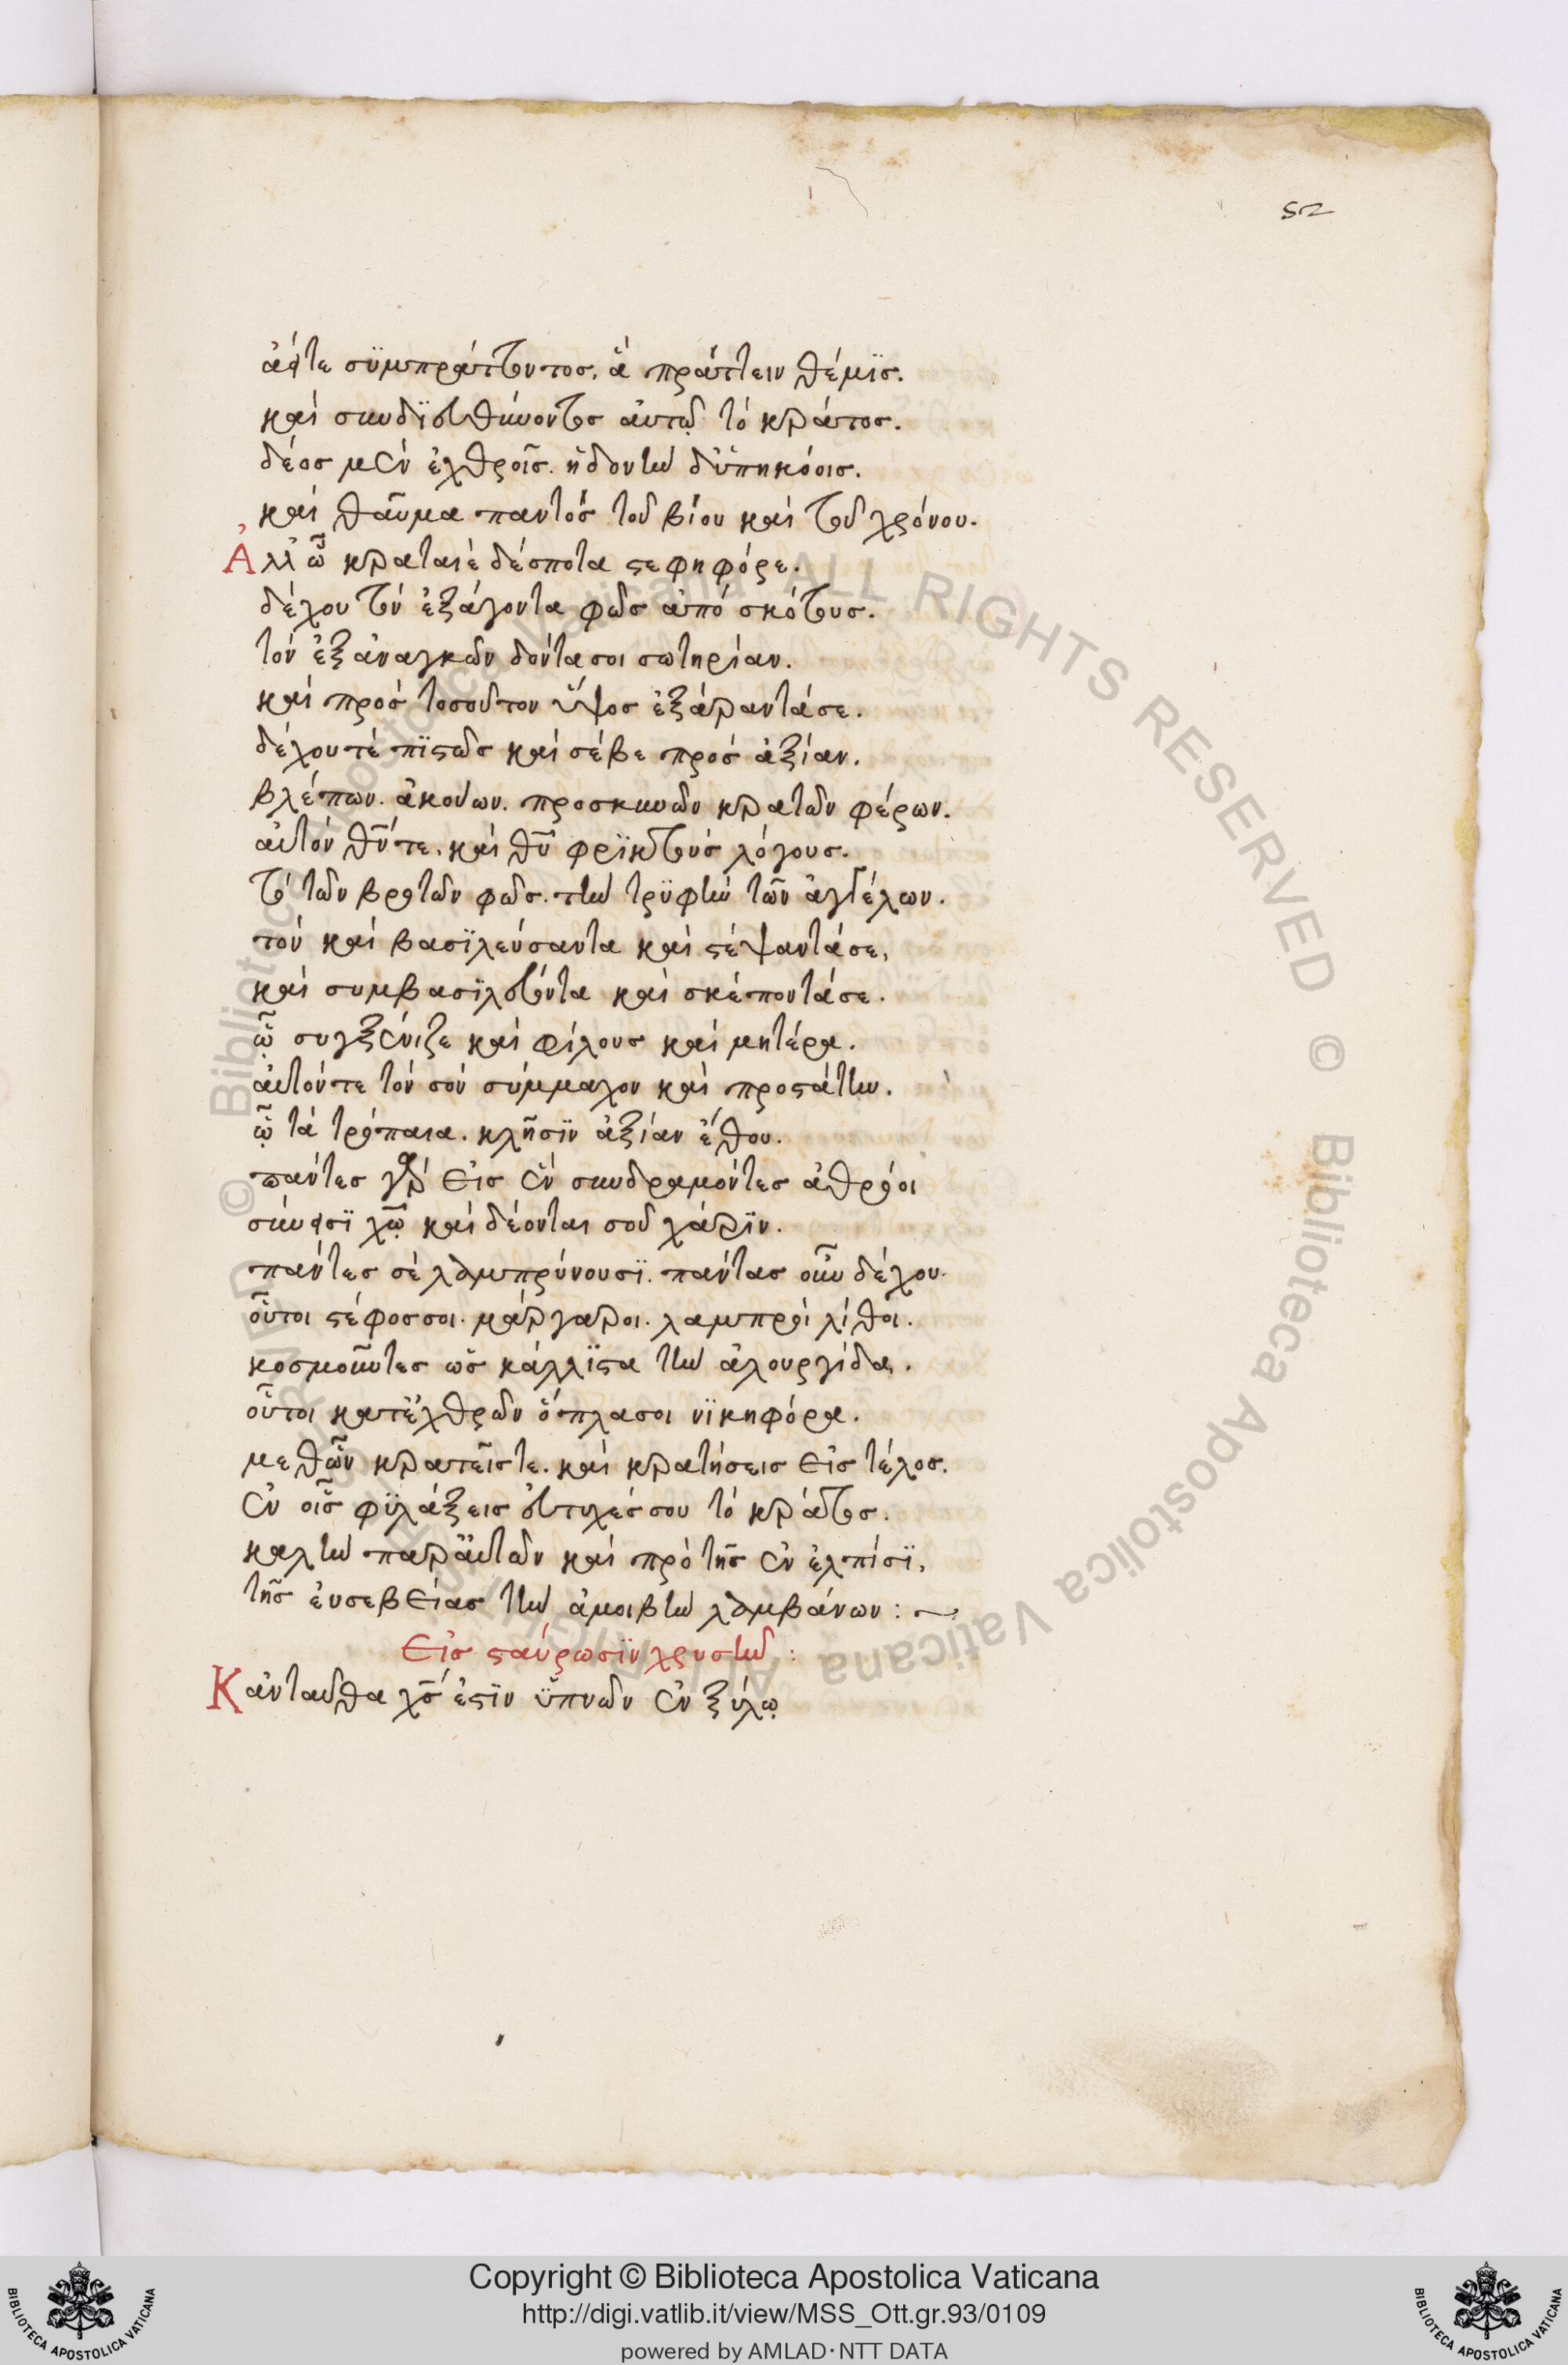 52
ἀεί τε συμπράττοντος, ἃ πράττειν θέμϊς.
καὶ συνδϊευθύνοντος αὐτῷ τὸ κράτος.
δέος μὲν ἐχθροῖς. ἡδονὴν δ' ὑπηκόοις.
καὶ θαῦμα παντὸς τοῦ βίου καὶ τοῦ χρόνου.
Ἀλλ' ὦ κραταιὲ δέσποτα στεφηφόρε.
δέχου τὸν ἐξάγοντα φῶς ἀπὸ σκότους.
τὸν ἐξ ἀναγκῶν δόντα σοι σωτηρίαν.
καὶ πρὸς τοσοῦτον ὕψος ἐξάραντά σε.
δέχου τὲ πϊστῶς καὶ σέβε πρὸς ἀξίαν.
βλέπων. ἀκούων. προσκυνῶν κρατῶν φέρων.
αὐτόν θν̅ τε. καὶ θυ̅ φρϊκτοὺς λόγους.
τὸ τῶν βροτῶν φῶς. τὴν τρϋφὴν τῶν ἀγγέλων.
τὸν καὶ βασϊλεύσαντα καὶ στέψαντά σε,
καὶ συμβασϊλεύοντα καὶ σκέποντά σε.
ᾧ συγξένιζε καὶ φίλους καὶ μητέρα.
αὐτόν τε τὸν σὸν σύμμαχον καὶ προστάτην.
ᾧ τὰ τρόπαια. κλῆσϊν ἀξίαν ἔθου.
πάντες γὰρ εἰς ἓν συνδραμόντες ἀθρόοι
σύνεισϊ χω̅ καὶ δέονται σοῦ χάρϊν.
πάντες σὲ λαμπρύνουσϊ. πάντας οὖν δέχου.
οὗτοι στέφος σοι. μάργαροι. λαμπροὶ λίθοι.
κοσμοῦντες ὡς κάλλϊστα τὴν ἁλουργίδα.
οὗτοι κατ' ἐχθρῶν ὅπλα σοι νϊκηφόρα.
μεθ' ὧν κρατεῖς τε. καὶ κρατήσεις εἰς τέλος.
ἐν οἷς φϋλάξεις εὐτυχές σου τὸ κράτος.
καλὴν παρ' αὐτῶν καὶ πρὸ τῆς ἐν ἐλπίσϊ,
τῆς εὐσεβείας τὴν ἀμοιβὴν λαμβάνων :
Εἰς σταύρωσϊν χρυστὴν :
Κἀνταῦθα χς̅ ἐστϊν ὑπνῶν ἐν ξύλῳ
© Biblioteca Apostolica Vaticana ALL RIGHTS RESERVED © Biblioteca Apostolica Vaticana ALL RIGHTS RESERVED
Copyright © Biblioteca Apostolica Vaticana
http://digi.vatlib.it/view/MSS_Ott.gr.93/0109
powered by AMLAD·NTT DATA
BIBLIOTECA APOSTOLICA VATICANA
BIBLIOTECA APOSTOLICA VATICANA